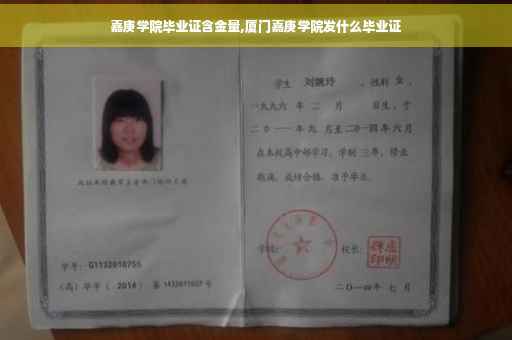 嘉庚学院毕业证含金量,厦门嘉庚学院发什么毕业证
学生 刘婉玲 ，性别 女 ，
一九九六 年 二 月 日生，于
二〇一一 年 九 月至 二〇一四 年 六 月
在本校高中部学习，学制 三 年，修业
期满，成绩合格，准予毕业。
学号： G1132010755
（高）毕字（ 2014 ）第 1432011027 号
学校：
校长：
二〇一四年 七 月